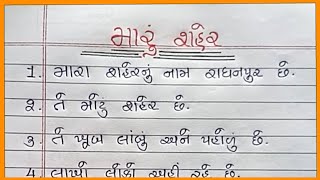 મારું શહેર
1. મારા શહેરનું નામ રાધનપુર છે.
૨. તે મોટું શહેર છે.
૩. તે ખૂબ લાંબું અને પહોળું છે.
૪. લાખો લોકો અહીં રહે છે.